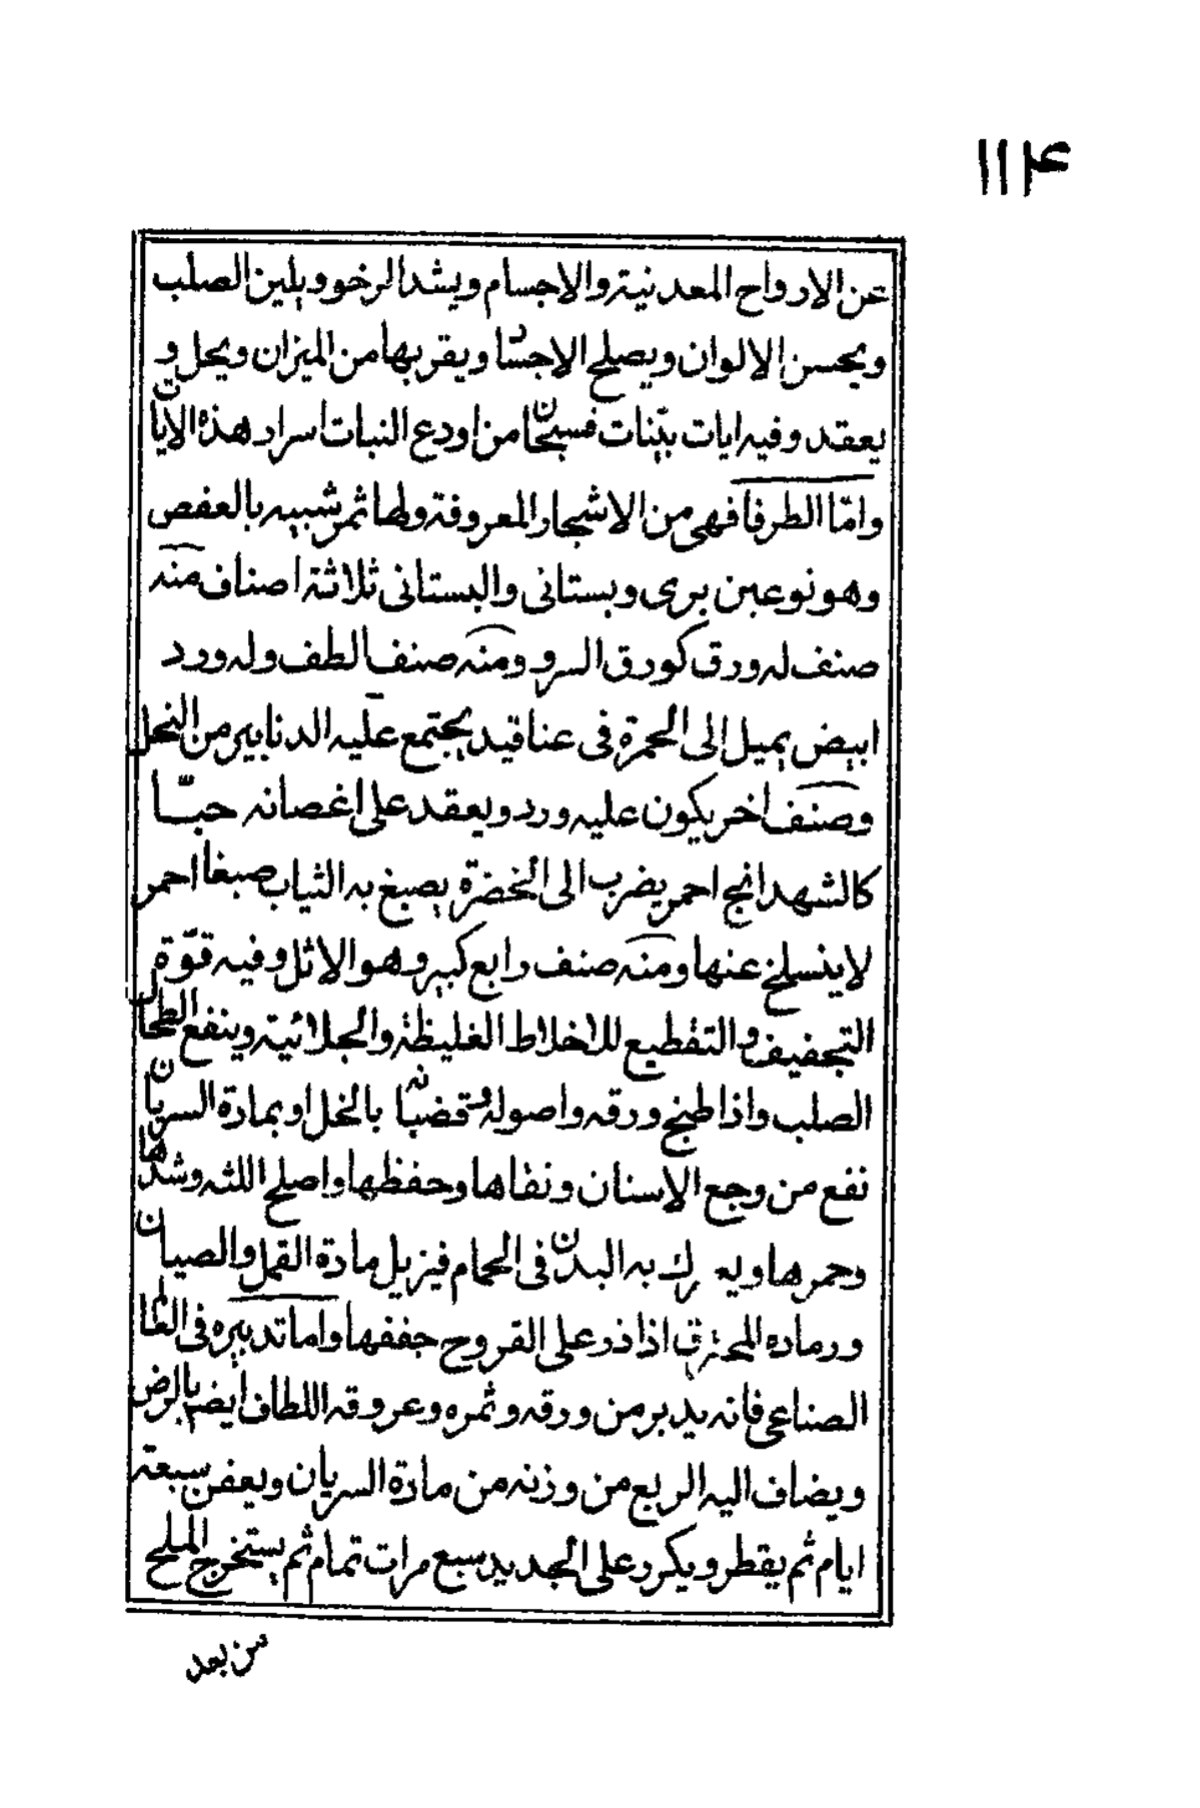 ١١۴
عن الارواح المعدنية والاجسام ويشد الرخو ويلين الصلب
ويحسن الالوان ويصلح الاجساد ويقربها من الميزان ويحل و
يعقد وفيه ايات بيّنات فسبحان من اودع النبات اسرار هذه الآيات
وامّا الطرفا فهى من الاشجار المعروفة ولها ثمر شبيه بالعفص
وهو نوعين برى وبستانى والبستانى ثلاثة اصناف منه
صنف له ورق كورق السرو ومنه صنف الطف وله ورد
ابيض يميل الى الحمرة فى عناقيد يجتمع عليه الدنابير من النحل
وصنف اخر يكون عليه ورد ويعقد على اغصانه حبّا
كالشهدانج احمر يضرب الى الخضرة يصبغ به الثياب صبغا احمر
لا ينسلخ عنها ومنه صنف رابع كبير وهو الاثل وفيه قوّة
التجفيف والتقطيع للاخلاط الغليظة والجلائية وينفع الطحال
الصلب واذا طبخ ورقه واصوله وقضبانه بالخل او بمادة السريان
نفع من وجع الاسنان ونقاها وحفظها واصلح اللثه وشدها
وحمرها ويدرك به البدن فى الحمام فيزيل مادة القمل والصيبان
ورماده المحترق اذا ذر على القروح جففها واما تدبيره فى العالم
الصناعى فانه يدبر من ورقه وثمره وعروقه اللطاف ايضا بالرض
ويضاف اليه الربع من وزنه من مادة السريان ويعفن سبعة
ايام ثم يقطر ويكرر على الجديد سبع مرات تمام ثم يستخرج الملح
من بعد